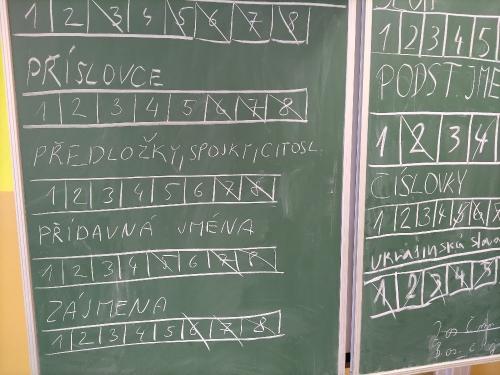 1 2 3 4 5 6 7 8
PŘÍSLOVCE
1 2 3 4 5 6 7 8
PŘEDLOŽKY, SPOJKY, CITOSL.
1 2 3 4 5 6 7 8
PŘÍDAVNÁ JMÉNA
1 2 3 4 5 6 7 8
ZÁJMENA
1 2 3 4 5 6 7 8
1 2 3 4 5
PODST. JMÉ
1 2 3 4
ČÍSLOVKY
1 2 3 4 5 6
ukrajinská slova
1 2 3 4 5